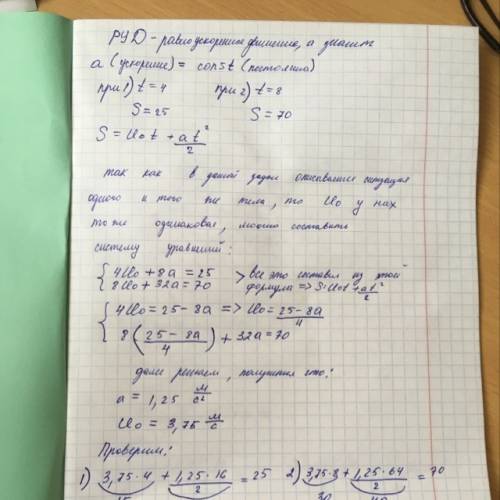 РУД - равноускоренное движение, а значит
a (ускорение) = const (постоянна)
при 1) t = 4 при 2) t = 8
S = 25 S = 70
S = U₀t + at²/2
так как в данной задаче описывается ситуация
одного и того же тела, то U₀ у них
тоже одинаковая, можно составить
систему уравнений:
{ 4U₀ + 8a = 25 > все это составил из этой
8U₀ + 32a = 70 формулы => S = U₀t + at²/2
{ 4U₀ = 25 - 8a => U₀ = 25 - 8a/4
8 (25 - 8a/4) + 32a = 70
далее решаем, получится что:
a = 1,25 м/с²
U₀ = 3,75 м/с
Проверим:
1) 3,75·4 + 1,25·16/2 = 25 2) 3,75·8 + 1,25·64/2 = 70
15 30 40